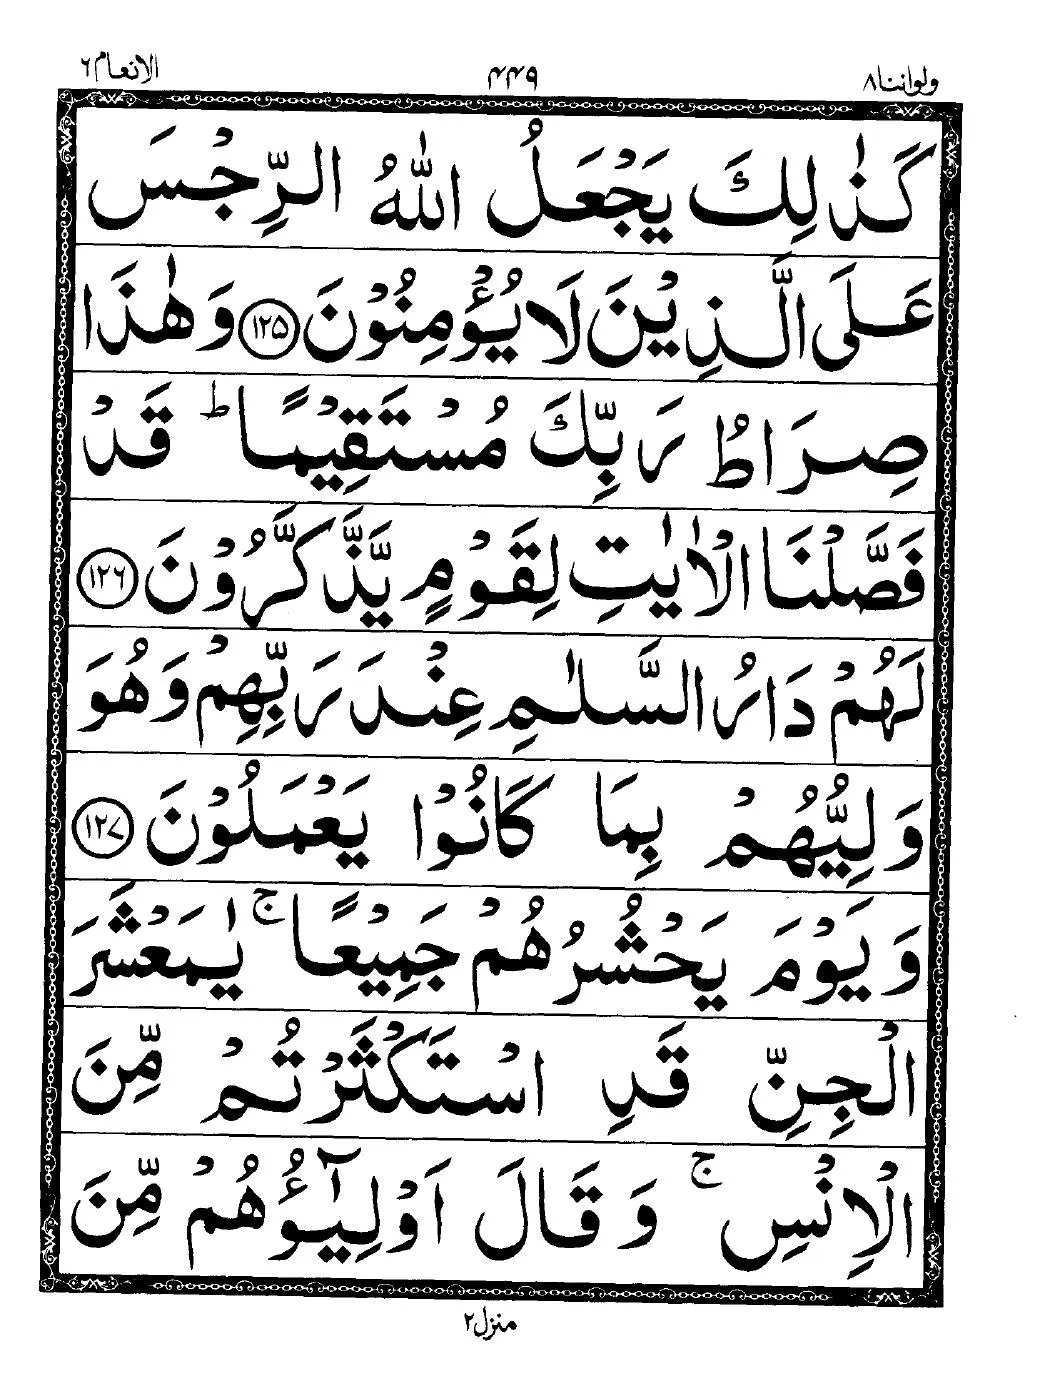 ولواننا ٨
٤٤٩
الانعام ٦
كَذٰلِكَ يَجْعَلُ اللّٰهُ الرِّجْسَ
عَلَى الَّذِيْنَ لَا يُؤْمِنُوْنَ ﴿١٢٥﴾ وَهٰذَا
صِرَاطُ رَبِّكَ مُسْتَقِيْمًا ؕ قَدْ
فَصَّلْنَا الْاٰيٰتِ لِقَوْمٍ يَّذَّكَّرُوْنَ ﴿١٢٦﴾
لَهُمْ دَارُ السَّلٰمِ عِنْدَ رَبِّهِمْ وَهُوَ
وَلِيُّهُمْ بِمَا كَانُوْا يَعْمَلُوْنَ ﴿١٢٧﴾
وَيَوْمَ يَحْشُرُهُمْ جَمِيْعًا ۚ يٰمَعْشَرَ
الْجِنِّ قَدِ اسْتَكْثَرْتُمْ مِّنَ
الْاِنْسِ ۚ وَقَالَ اَوْلِيٰٓؤُهُمْ مِّنَ
منزل ٢